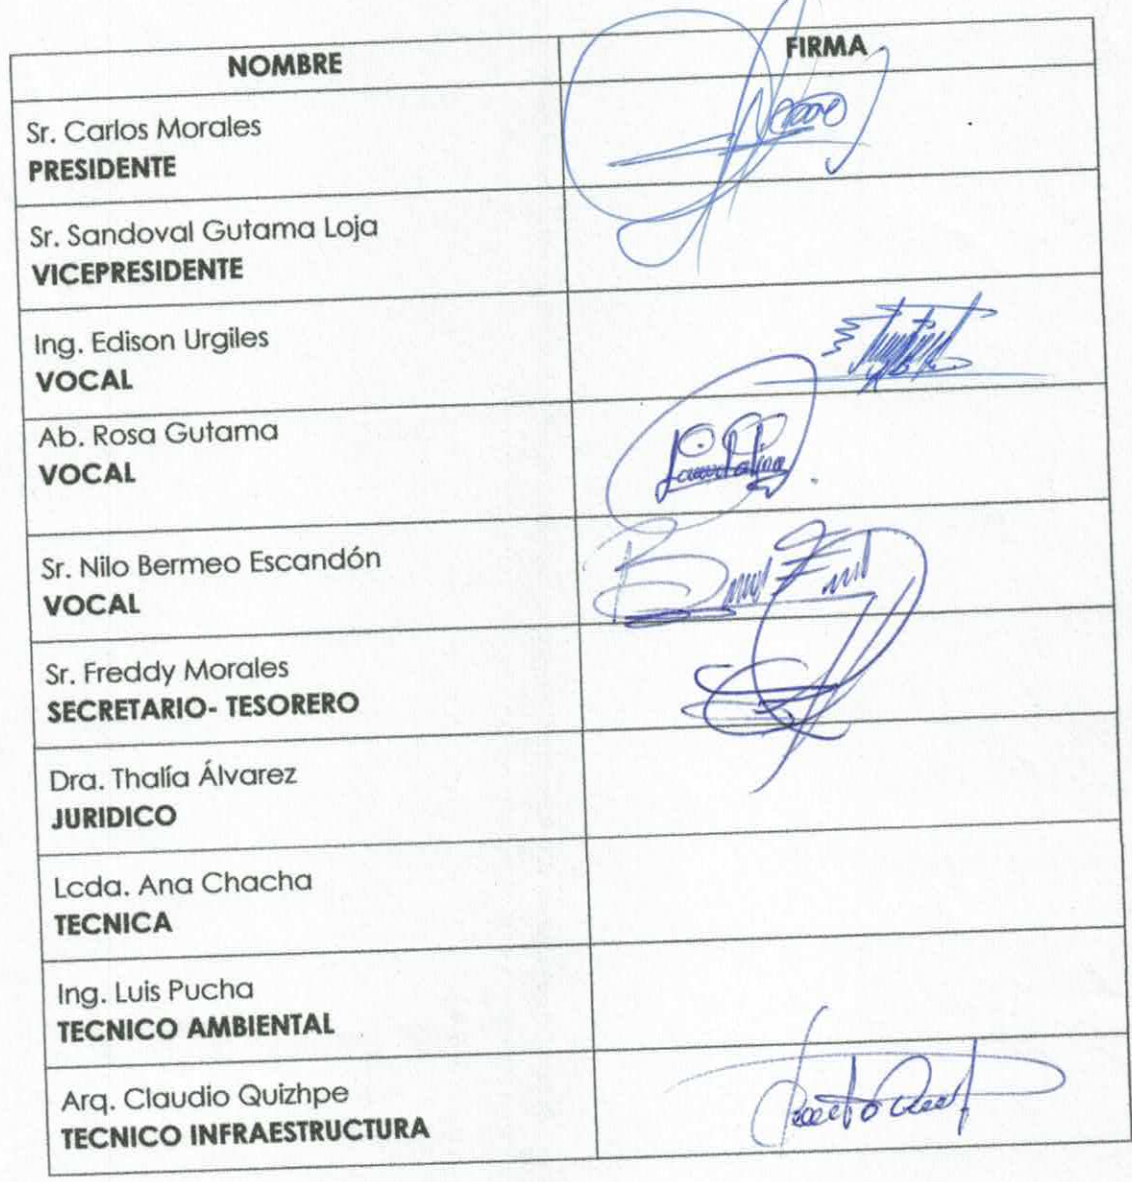 NOMBRE FIRMA
Sr. Carlos Morales
PRESIDENTE
Sr. Sandoval Gutama Loja
VICEPRESIDENTE
Ing. Edison Urgiles
VOCAL
Ab. Rosa Gutama
VOCAL
Sr. Nilo Bermeo Escandón
VOCAL
Sr. Freddy Morales
SECRETARIO- TESORERO
Dra. Thalía Álvarez
JURIDICO
Lcda. Ana Chacha
TECNICA
Ing. Luis Pucha
TECNICO AMBIENTAL
Arq. Claudio Quizhpe
TECNICO INFRAESTRUCTURA